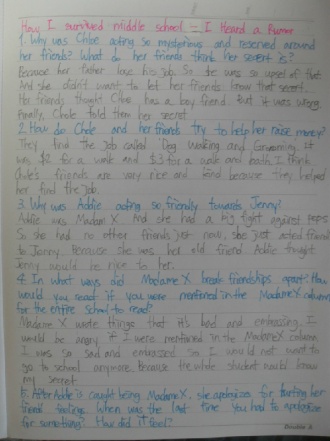 How I survived middle school - I Heard a Rumor
1. Why was Chloe acting so mysterious and reserved around
her friends? What do her friends think her secret is?
Because her father lose his job. So she was so upset of that.
And she didn't want to let her friends know that secret.
Her friends thought Chloe has a boy friend. But it was wrong.
Finally, Chole told them her secret.
2. How do Chole and her friends try to help her raise money?
They find the Job called 'Dog Walking and Grooming'. It
was $2 for a walk and $3 for a walk and bath. I think
Chole's friends are very nice and kind because they helped
her find the Job.
3. Why was Addie acting so friendly towards Jenny?
Addie was Madame X. And she had a big fight against peps.
So she had no other friends just now, she just acted friend
to Jenny. Because she was her old friend. Addie thought
Jenny would be nice to her.
4. In what ways did Madame X break friendships apart? How
would you react if you were mentioned in the Madame X column
for the entire school to read?
Madame X wrote things that it's bad and embrassing. I
would be angry if I were mentioned in the Madame X column.
I was so sad and embrassed so I would not want to
go to school anymore. Because the whole student would know
my secret.
5. After Addie is caught being Madame X, she apologizes for hurting her
friends' feelings. When was the last time you had to apologize
for something? How did it feel?
Double A